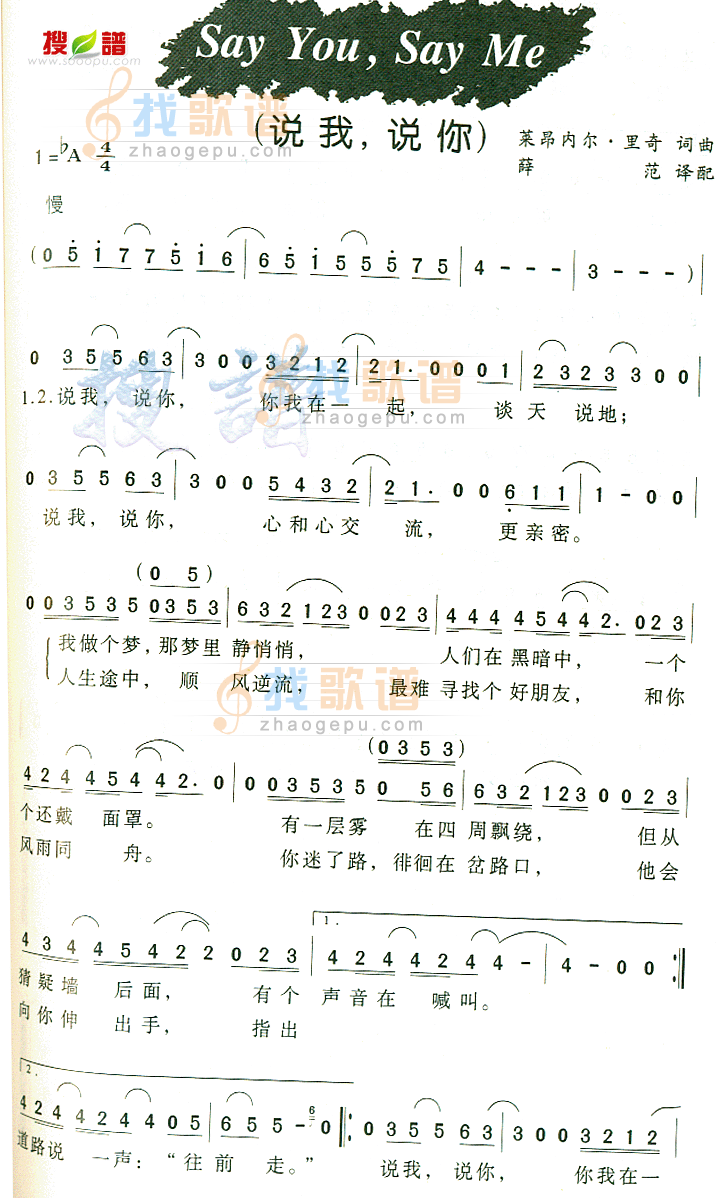 搜谱
www.sooopu.com
Say You, Say Me
(说我,说你)
找歌谱
zhaogepu.com
莱昂内尔·里奇 词曲
薛 范 译配
1=♭A 4/4
慢
(0 5 1 7 7 5 1 6 | 6 5 1 5 5 5 7 5 | 4 - - - | 3 - - - )|
0 3 5 5 6 3 | 3 0 0 3 2 1 2 | 2 1. 0 0 0 1 | 2 3 2 3 3 0 0 |
1.2.说我, 说你, 你我在一 起, 谈天 说地;
搜谱
找歌谱
zhaogepu.com
0 3 5 5 6 3 | 3 0 0 5 4 3 2 | 2 1. 0 0 6 1 1 | 1 - 0 0 |
说我, 说你, 心和心交 流, 更亲密。
(0 5)
0 0 3 5 3 5 0 3 5 3 | 6 3 2 1 2 3 0 0 2 3 | 4 4 4 4 5 4 4 2. 0 2 3 |
我做个梦,那梦里 静悄悄, 人们在 黑暗中, 一个
人生途中, 顺 风逆流, 最难 寻找个 好朋友, 和你
找歌谱
zhaogepu.com
(0 3 5 3)
4 2 4 4 5 4 4 2. 0 | 0 0 3 5 3 5 0 5 6 | 6 3 2 1 2 3 0 0 2 3 |
个还戴 面罩。 有一层雾 在四 周飘绕, 但从
风雨同 舟。 你迷了路,徘徊在 岔路口, 他会
1.
4 3 4 4 5 4 2 2 0 2 3 | 4 2 4 4 2 4 4 - | 4 - 0 0 :|
猜疑墙 后面, 有个 声音在 喊叫。
向你伸 出手, 指出
2.
4 2 4 4 2 4 4 0 5 | 6 5 5 - 6 0 :| 0 3 5 5 6 3 | 3 0 0 3 2 1 2 |
道路说 一声:“往前 走。” 说我,说你, 你我在一
找歌谱
zhaogepu.com